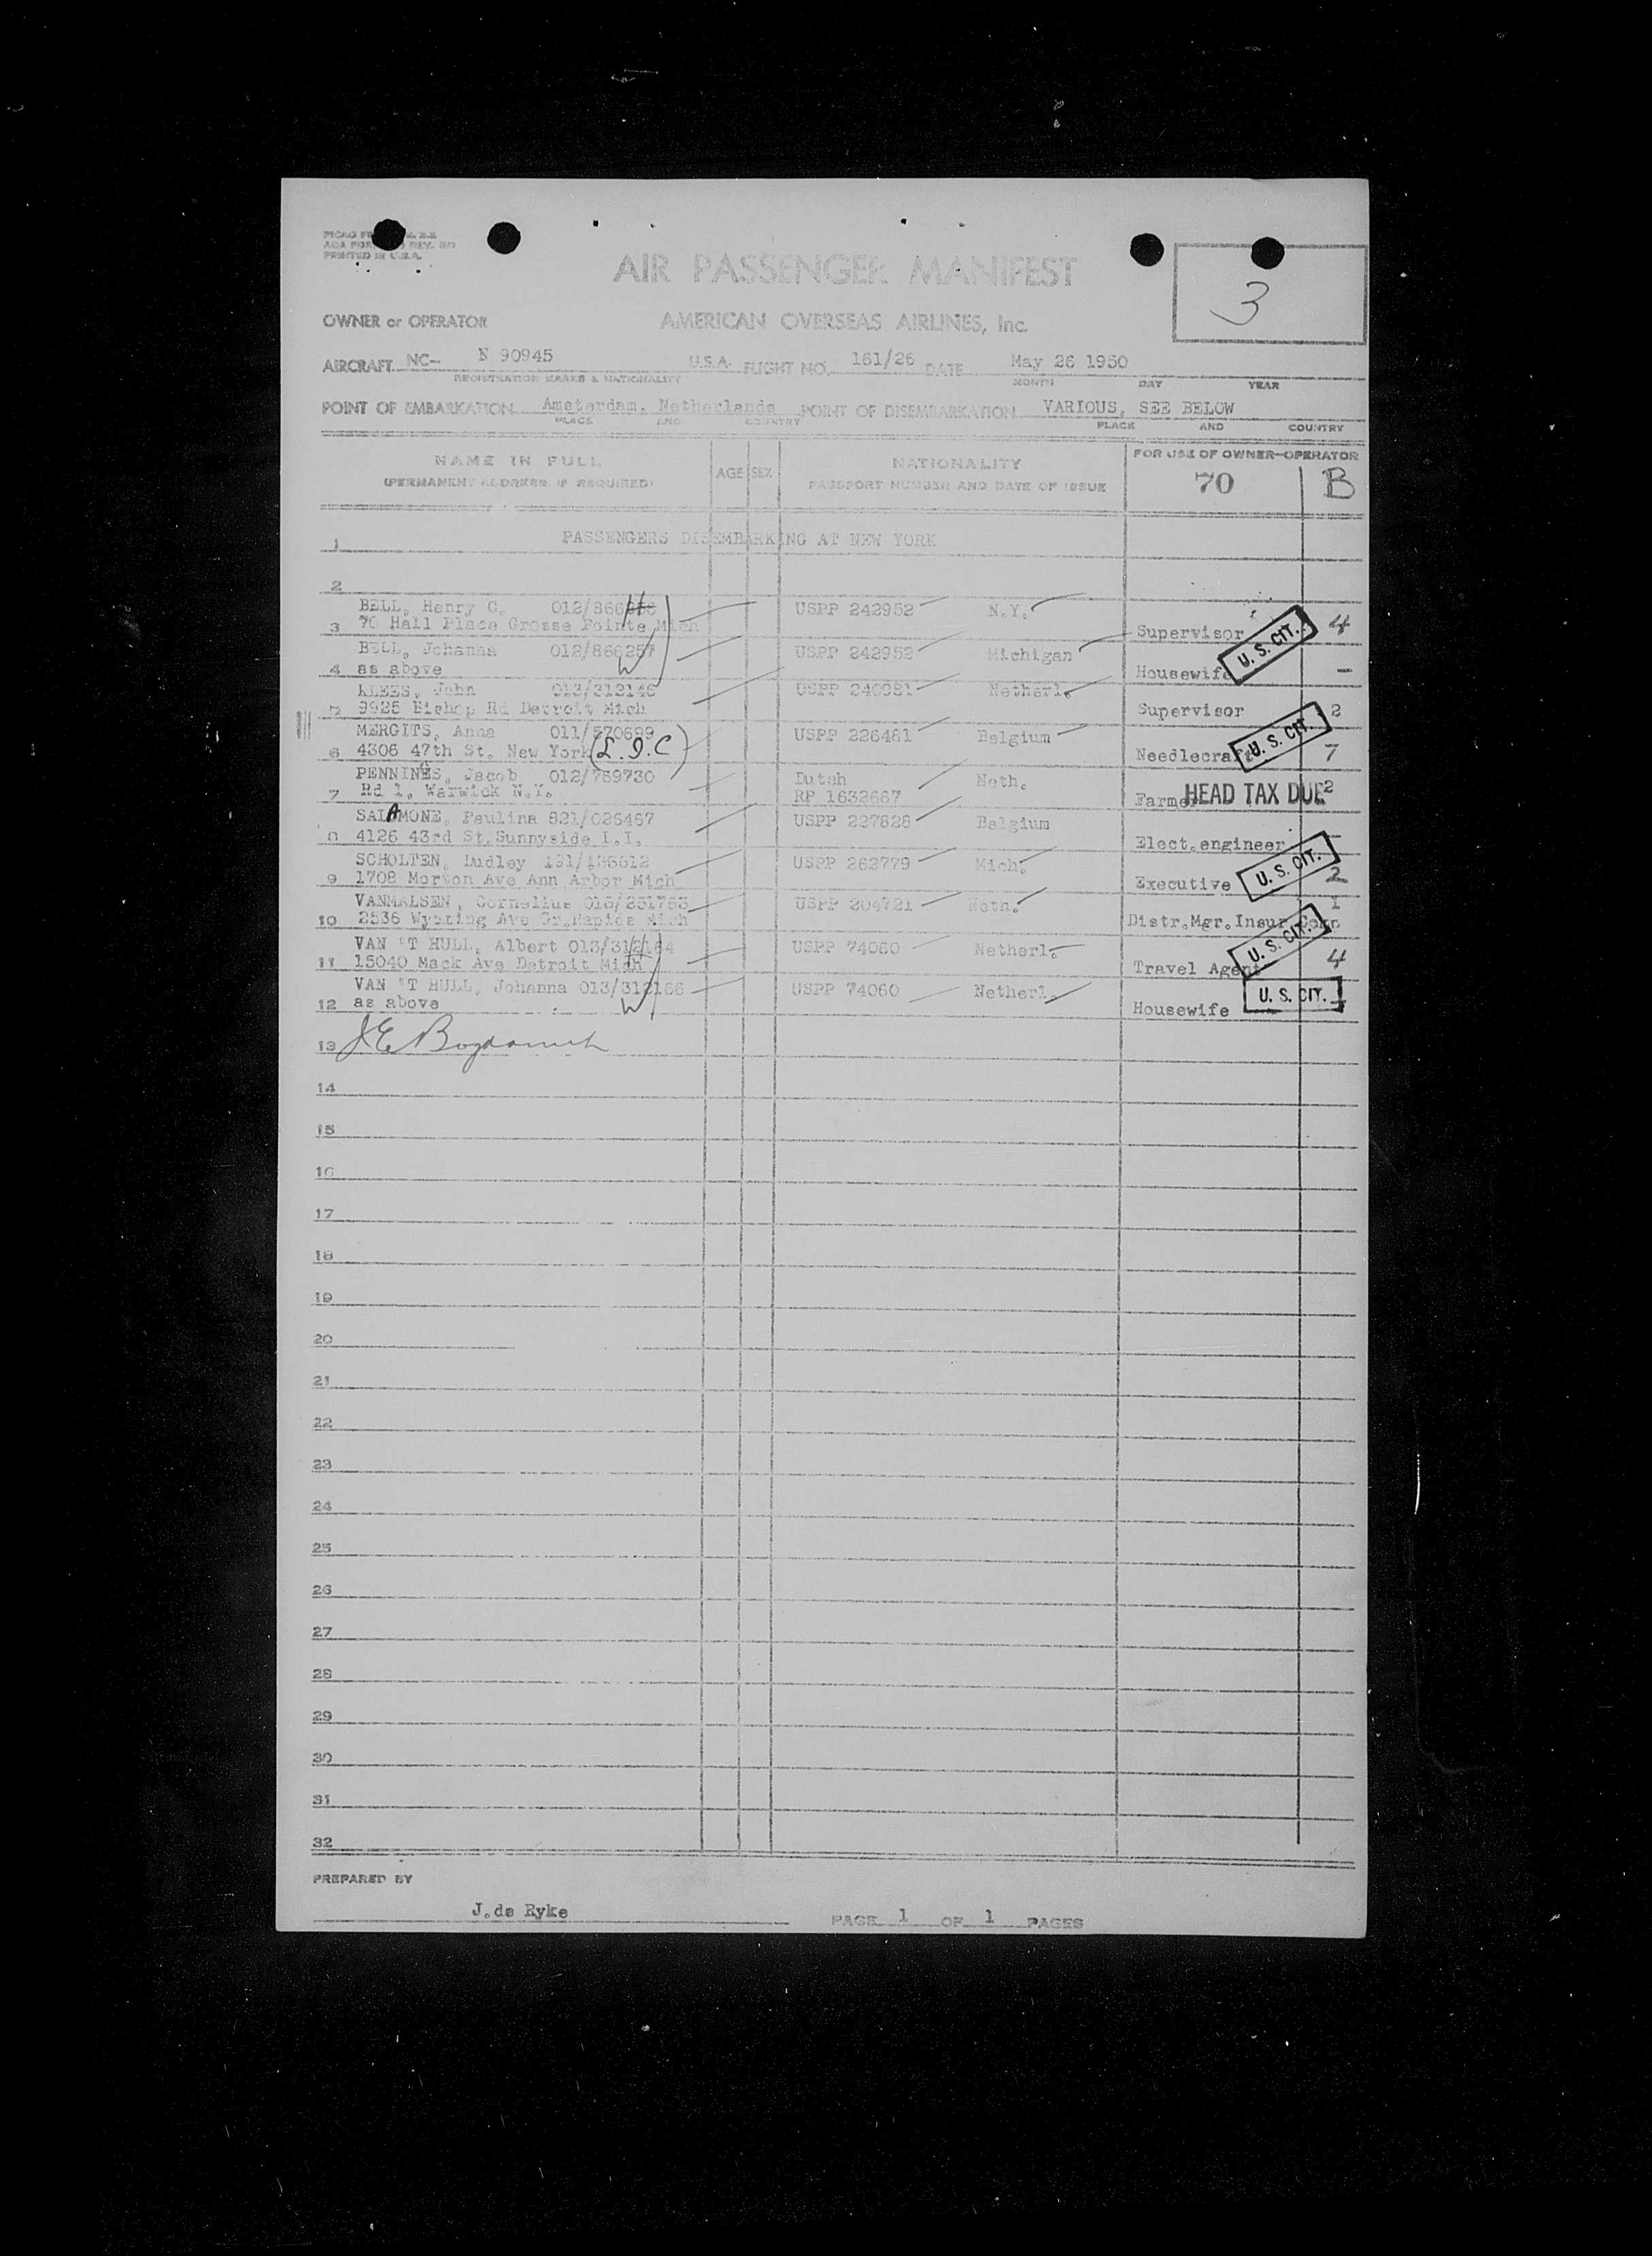 PRINTED IN U.S.A.
AIR PASSENGER MANIFEST
3
OWNER or OPERATOR AMERICAN OVERSEAS AIRLINES, Inc.
AIRCRAFT NC- N 90945 U.S.A. FLIGHT NO. 161/26 DATE May 26 1950
REGISTRATION MARKS & NATIONALITY MONTH DAY YEAR
POINT OF EMBARKATION Amsterdam, Netherlands POINT OF DISEMBARKATION VARIOUS, SEE BELOW
PLACE AND COUNTRY PLACE AND COUNTRY
NAME IN FULL AGE SEX NATIONALITY FOR USE OF OWNER-OPERATOR
(PERMANENT ADDRESS IF REQUIRED) PASSPORT NUMBER AND DATE OF ISSUE 70 B
1 PASSENGERS DISEMBARKING AT NEW YORK
2
BELL, Henry C. USPP 242952 N.Y.
3 70 Hall Place Grosse Pointe Mich Supervisor U. S. CIT. 4
BELL, Johanna 012/866257 USPP 242952 Michigan
4 as above Housewife -
KLEES, John 013/312146 USPP 240981 Netherl.
5 9925 Bishop Rd Detroit Mich Supervisor 2
MERGITS, Anna 011/570699 USPP 226461 Belgium
6 4306 47th St. New York (L.I.C) Needlecraft U. S. CIT. 7
PENNINGS, Jacob 012/759730 Dutch Neth.
7 Rd 1, Warwick N.Y. RP 1632667 Farmer HEAD TAX DUE 2
SALAMONE, Paulina 821/026467 USPP 227828 Belgium
8 4126 43rd St. Sunnyside L.I. Elect.engineer -
SCHOLTEN, Dudley USPP 262779 Mich.
9 1708 Morton Ave Ann Arbor Mich Executive U. S. CIT. 2
VANMALSEN, Cornelius USPP 204721 Neth. 1
10 2536 Wyoming Ave Gr.Rapids Mich Distr.Mgr.Insur.Comp
VAN 'T HULL, Albert 013/312164 USPP 74060 Netherl.
11 15040 Mack Ave Detroit Mich Travel Agent U. S. CIT. 4
VAN 'T HULL, Johanna 013/312166 USPP 74060 Netherl.
12 as above Housewife U. S. CIT.
13
14
15
16
17
18
19
20
21
22
23
24
25
26
27
28
29
30
31
32
PREPARED BY
J.de Ryke PAGE 1 OF 1 PAGES